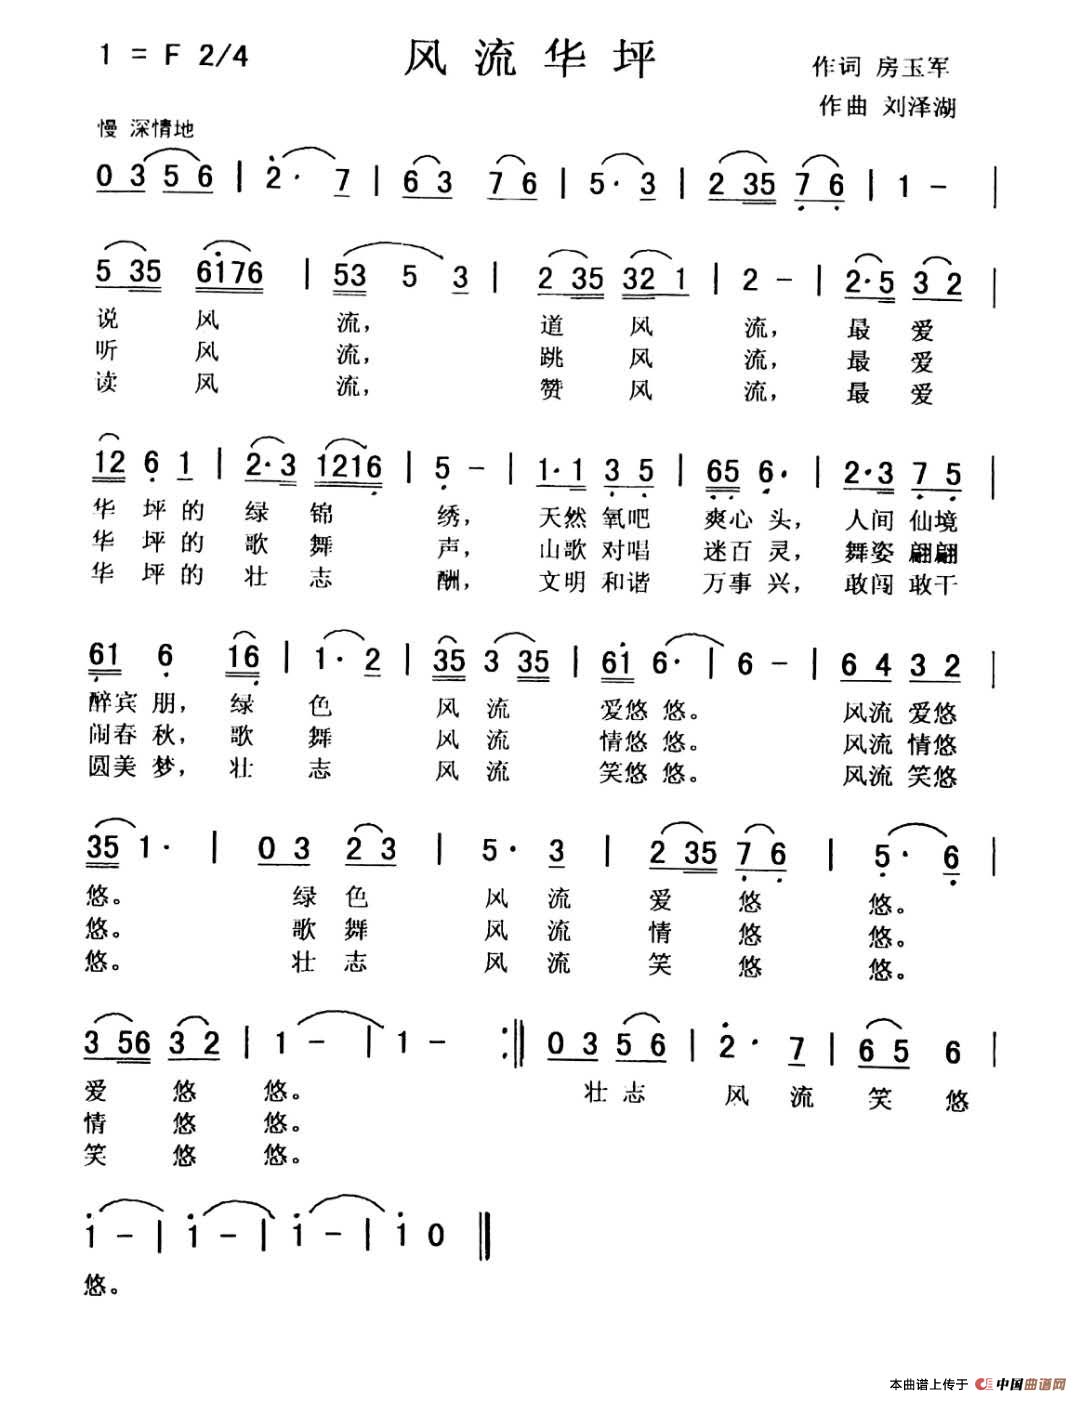 1 = F 2/4
风流华坪
作词 房玉军
作曲 刘泽湖
慢 深情地
0 3 5 6 | 2· 7 | 6 3 7 6 | 5· 3 | 2 35 7 6 | 1 - |
5 35 6176 | 53 5 3 | 2 35 32 1 | 2 - | 2·5 3 2 |
说 风 流, 道 风 流, 最 爱
听 风 流, 跳 风 流, 最 爱
读 风 流, 赞 风 流, 最 爱
12 6 1 | 2·3 1216 | 5 - | 1·1 3 5 | 65 6· | 2·3 7 5 |
华 坪 的 绿 锦 绣, 天然 氧吧 爽心 头, 人间 仙境
华 坪 的 歌 舞 声, 山歌 对唱 迷百 灵, 舞姿 翩翩
华 坪 的 壮 志 酬, 文明 和谐 万事 兴, 敢闯 敢干
61 6 16 | 1· 2 | 35 3 35 | 61 6· | 6 - | 6 4 3 2 |
醉宾 朋, 绿 色 风 流 爱悠 悠。 风流 爱悠
闹春 秋, 歌 舞 风 流 情悠 悠。 风流 情悠
圆美 梦, 壮 志 风 流 笑悠 悠。 风流 笑悠
35 1· | 0 3 2 3 | 5· 3 | 2 35 7 6 | 5· 6 |
悠。 绿 色 风 流 爱 悠 悠。
悠。 歌 舞 风 流 情 悠 悠。
悠。 壮 志 风 流 笑 悠 悠。
3 56 3 2 | 1 - | 1 - :‖ 0 3 5 6 | 2· 7 | 6 5 6 |
爱 悠 悠。 壮 志 风 流 笑 悠
情 悠 悠。
笑 悠 悠。
1 - | 1 - | 1 - | 1 0 ‖
悠。
本曲谱上传于 中国曲谱网